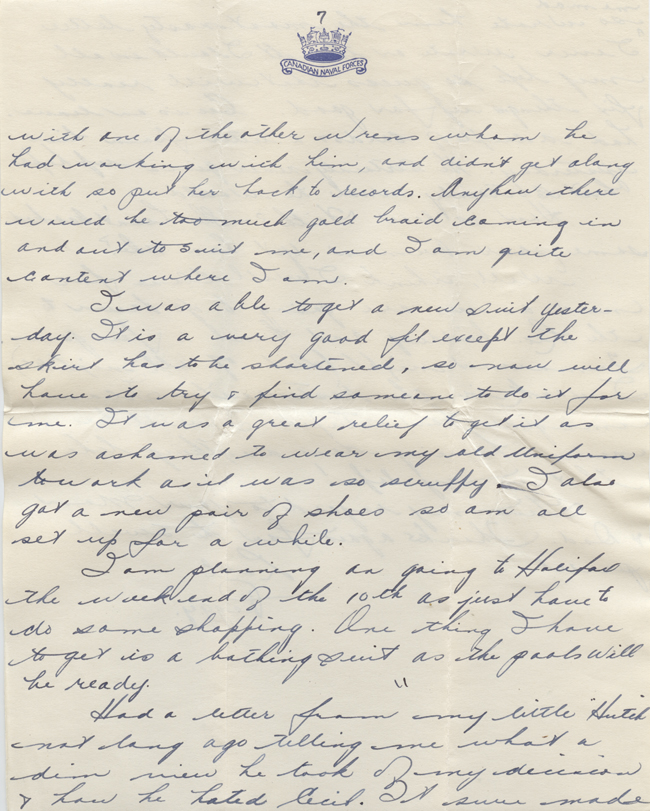 7
CANADIAN NAVAL FORCES
with one of the other Wrens whom he
had working with him, and didn't get along
with so put her back to records. Anyhow there
would be too much gold braid coming in
and out to suit me, and I am quite
content where I am.
I was able to get a new suit yester-
day. It is a very good fit except the
skirt has to be shortened, so now will
have to try & find someone to do it for
me. It was a great relief to get it as
was ashamed to wear my old uniform
to work as it was so scruffy. I also
got a new pair of shoes so am all
set up for a while.
I am planning on going to Halifax
the week end of the 10th as just have to
do some shopping. One thing I have
to get is a bathing suit as the pools will
be ready.
Had a letter from my little "Hutch"
not long ago telling me what a
dim view he took of my decision
& how he hated Cecil. It sure made